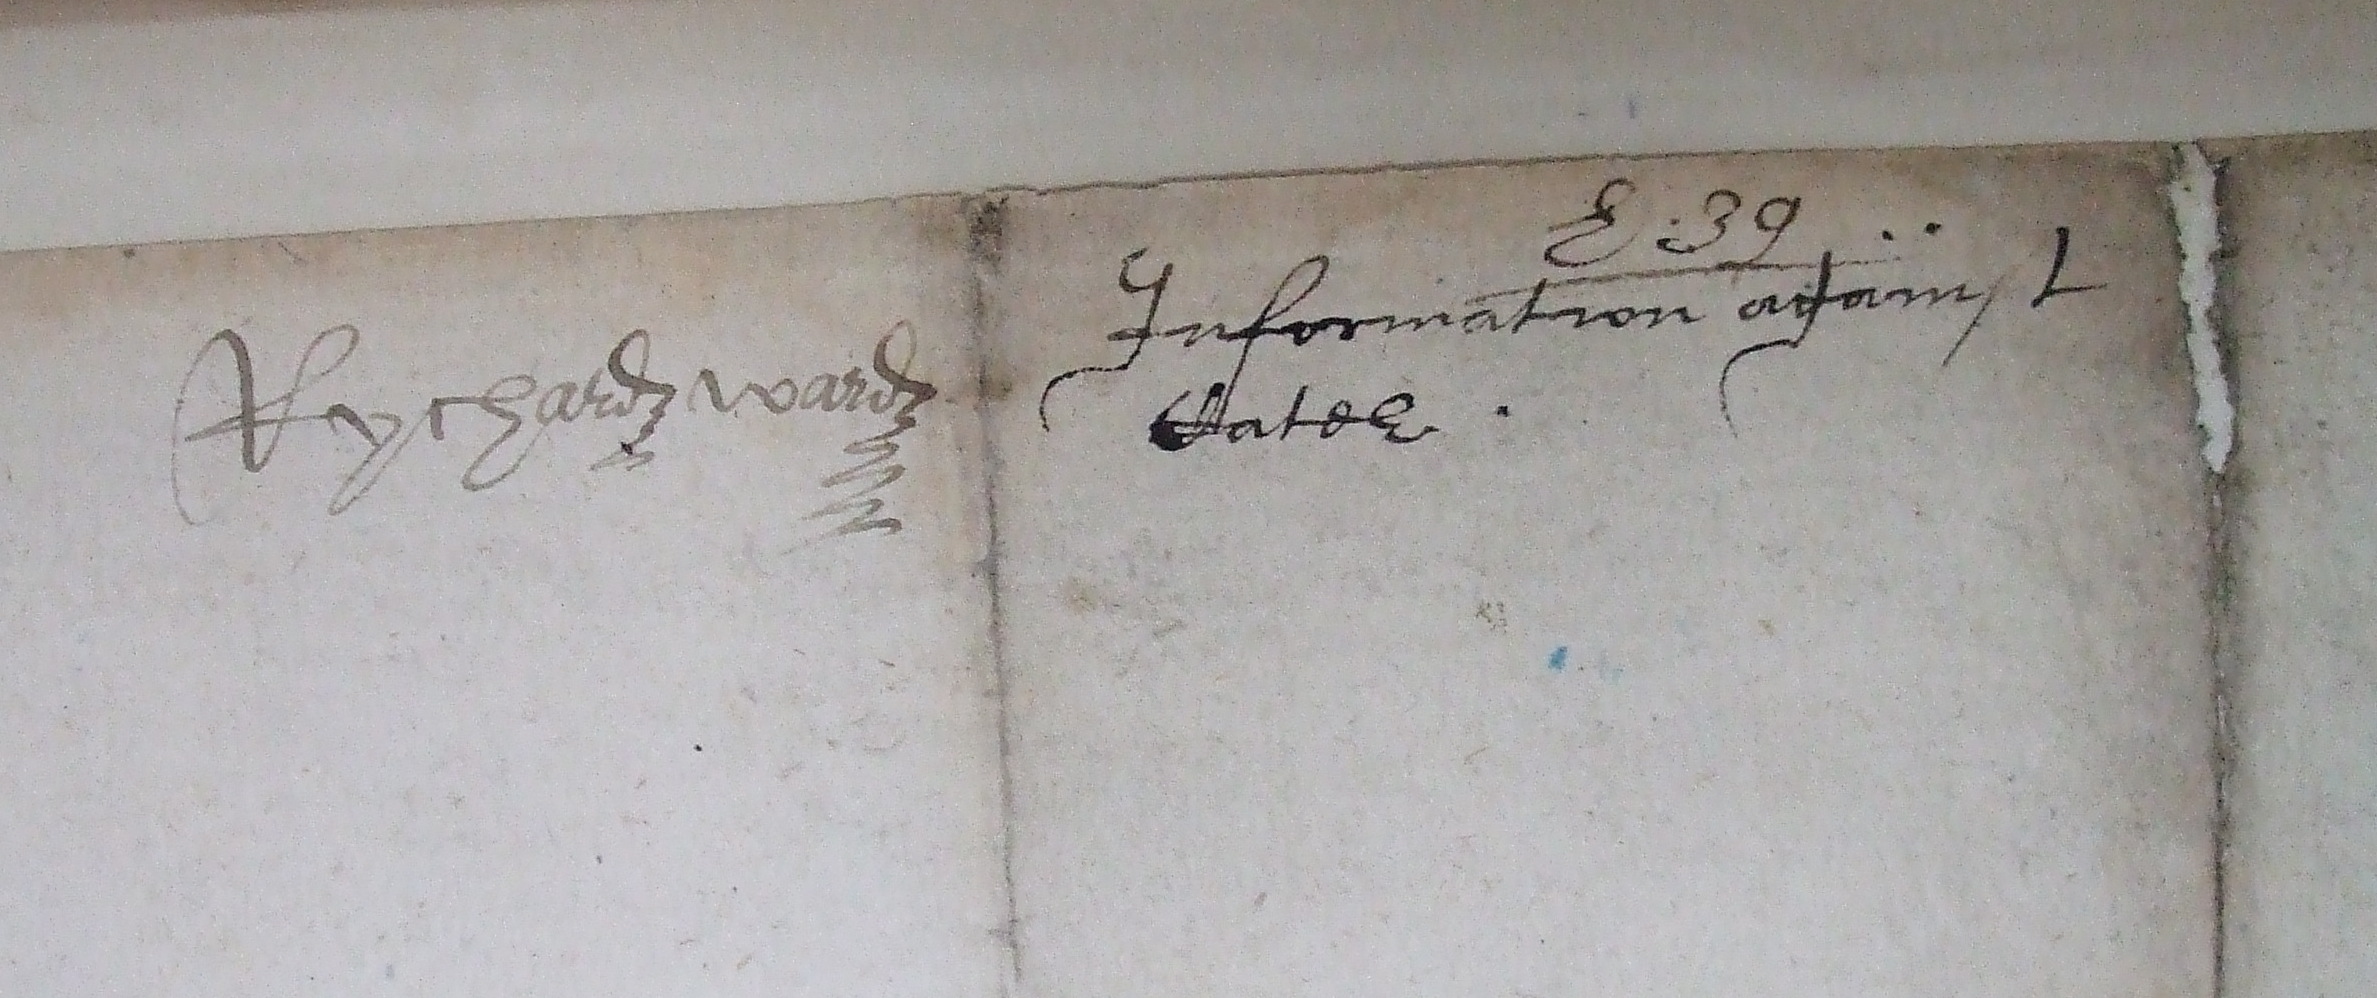 E :39 ..
Information against
Rychard ward